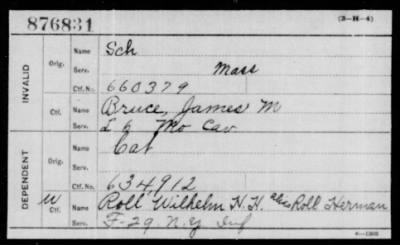 876831
(3-H-4)
INVALID
Orig.
Name Sch
Serv. Mass
Ctf. No. 660379
Ctf.
Name Bruce, James M
Serv. L 6 Mo Cav
DEPENDENT
Orig.
Name Cat
Serv.
Ctf. No. 634,912
W Ctf.
Name Roll Wilhelm H. H. alias Roll Herman
Serv. F-29 N.Y. Inf